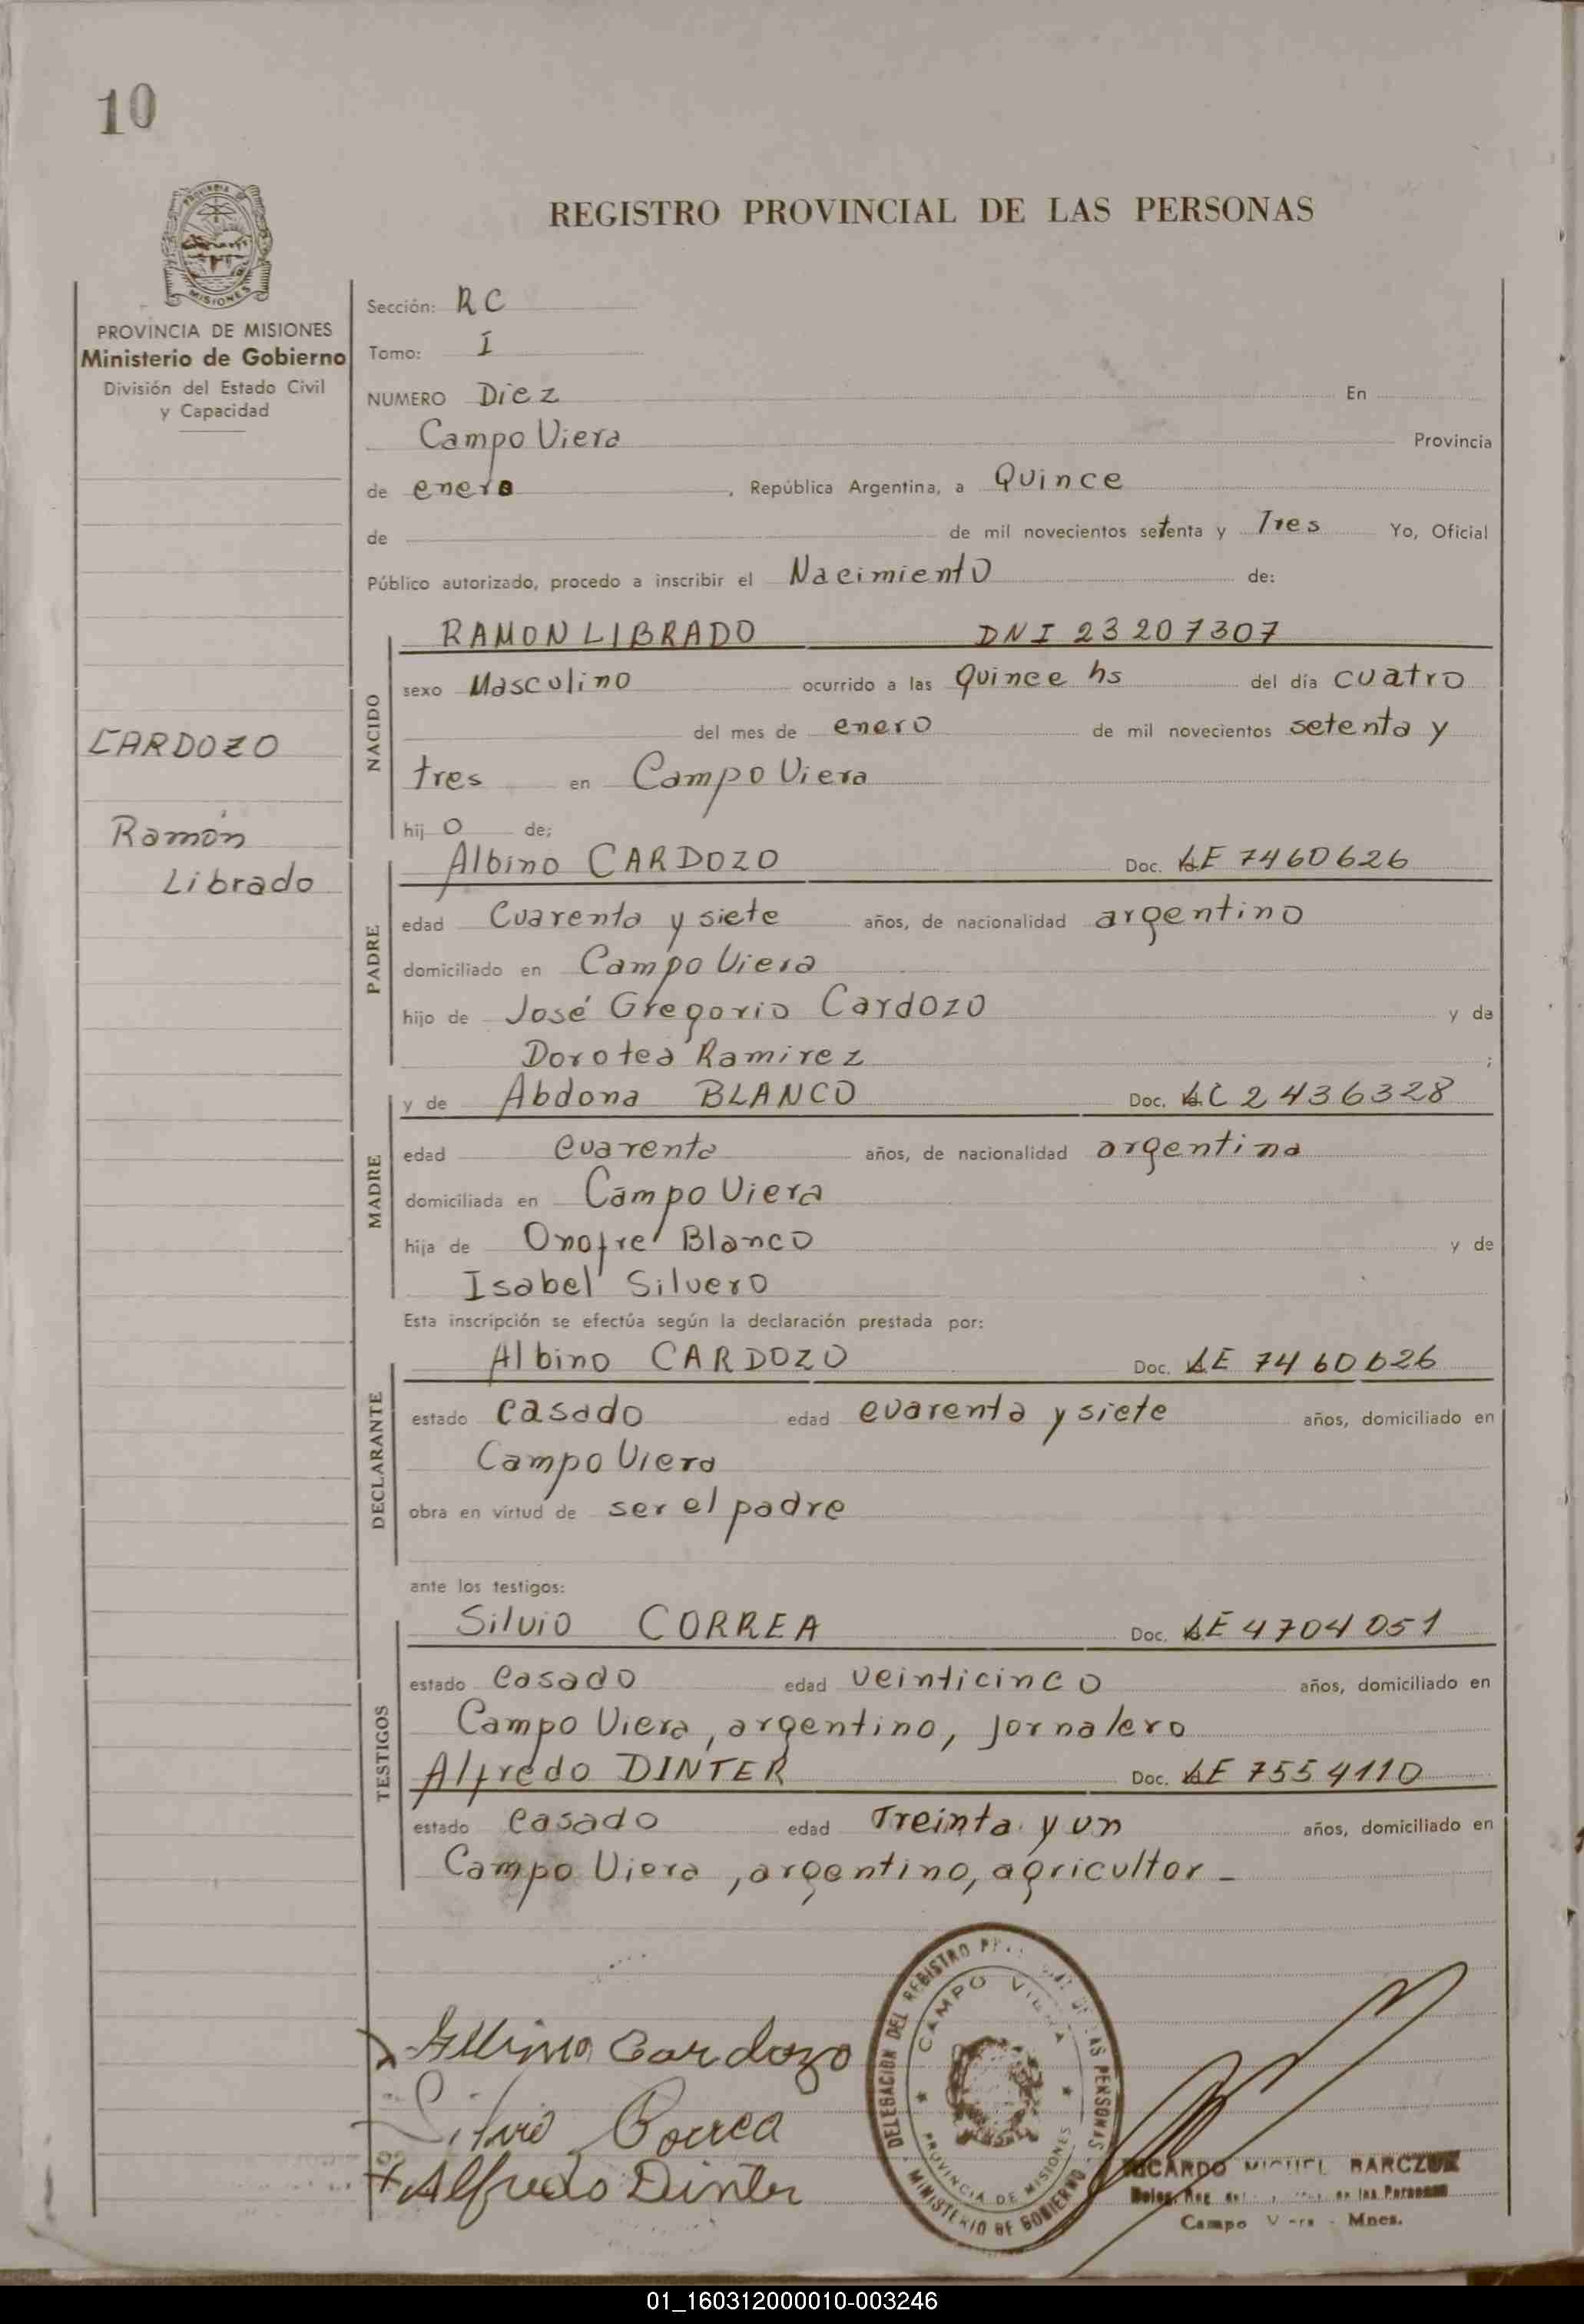 10
PROVINCIA DE MISIONES
Ministerio de Gobierno
División del Estado Civil
y Capacidad
CARDOZO
Ramón
Librado
REGISTRO PROVINCIAL DE LAS PERSONAS
Sección: RC
Tomo: I
NUMERO Diez En
Campo Viera Provincia
de enero , República Argentina, a Quince
de de mil novecientos setenta y Tres Yo, Oficial
Público autorizado, procedo a inscribir el Nacimiento de:
NACIDO
RAMON LIBRADO DNI 23207307
sexo Masculino ocurrido a las Quince hs del día cuatro
del mes de enero de mil novecientos setenta y
tres en Campo Viera
hij o de;
PADRE
Albino CARDOZO Doc. LE 7460626
edad Cuarenta y siete años, de nacionalidad argentino
domiciliado en Campo Viera
hijo de José Gregorio Cardozo y de
Dorotea Ramirez ;
MADRE
y de Abdona BLANCO Doc. LC 2436328
edad cuarenta años, de nacionalidad argentina
domiciliada en Campo Viera
hija de Onofre Blanco y de
Isabel Silvero
Esta inscripción se efectúa según la declaración prestada por:
DECLARANTE
Albino CARDOZO Doc. LE 7460626
estado casado edad cuarenta y siete años, domiciliado en
Campo Viera
obra en virtud de ser el padre
ante los testigos:
TESTIGOS
Silvio CORREA Doc. LE 4704051
estado casado edad veinticinco años, domiciliado en
Campo Viera, argentino, jornalero
Alfredo DINTER Doc. LE 7554110
estado casado edad Treinta y un años, domiciliado en
Campo Viera, argentino, agricultor -
Albino Cardozo
Silvio Correa
Alfredo Dinter
DELEGACION DEL REGISTRO DE LAS PERSONAS
CAMPO VIERA
PROVINCIA DE MISIONES
MINISTERIO DE GOBIERNO
RICARDO MIGUEL BARCZUK
de las Personas
Campo Viera - Mnes.
01_160312000010-003246